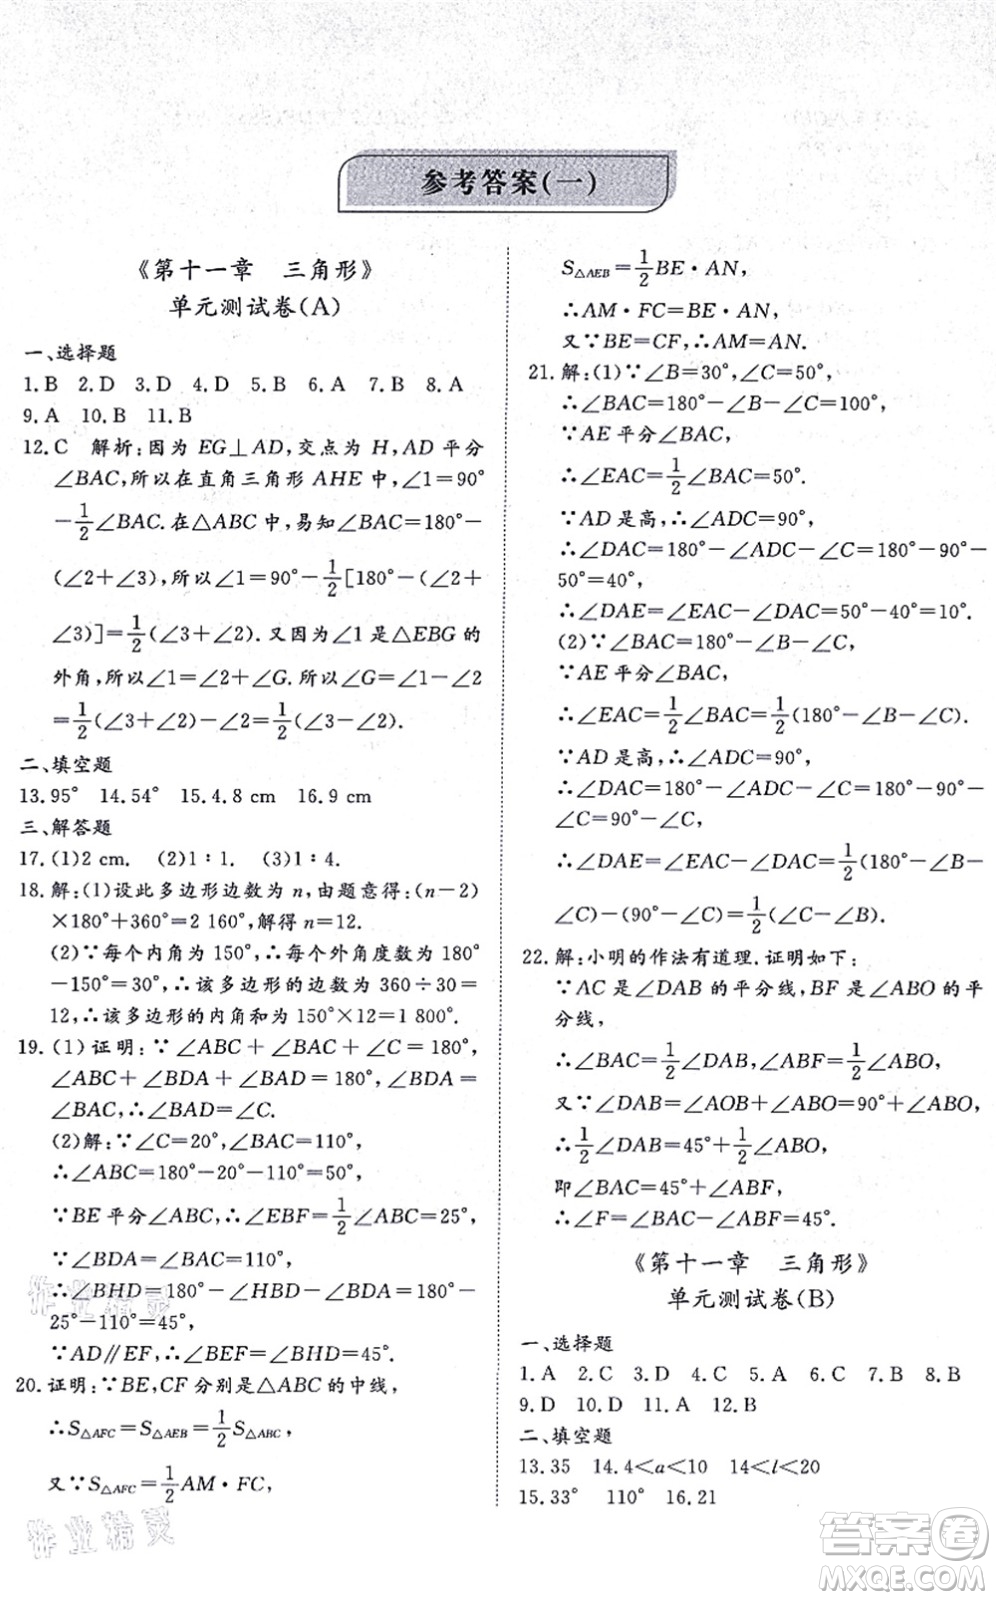 参考答案(一)
《第十一章 三角形》
单元测试卷(A)
一、选择题
1.B 2.D 3.D 4.D 5.B 6.A 7.B 8.A
9.A 10.B 11.B
12.C 解析:因为 EG⊥AD,交点为 H,AD 平分
∠BAC,所以在直角三角形 AHE 中,∠1=90°
-1/2∠BAC.在△ABC中,易知∠BAC=180°-
(∠2+∠3),所以∠1=90°-1/2[180°-(∠2+
∠3)]=1/2(∠3+∠2).又因为∠1是△EBG的
外角,所以∠1=∠2+∠G.所以∠G=∠1-∠2
=1/2(∠3+∠2)-∠2=1/2(∠3-∠2).
二、填空题
13.95° 14.54° 15.4.8 cm 16.9 cm
三、解答题
17.(1)2 cm. (2)1∶1. (3)1∶4.
18.解:(1)设此多边形边数为 n,由题意得:(n-2)
×180°+360°=2 160°,解得 n=12.
(2)∵每个内角为 150°,∴每个外角度数为 180°
-150°=30°,∴该多边形的边数为 360÷30=
12,∴该多边形的内角和为 150°×12=1 800°.
19.(1)证明:∵∠ABC+∠BAC+∠C=180°,
∠ABC+∠BDA+∠BAD=180°,∠BDA=
∠BAC,∴∠BAD=∠C.
(2)解:∵∠C=20°,∠BAC=110°,
∴∠ABC=180°-20°-110°=50°,
∵BE平分∠ABC,∴∠EBF=1/2∠ABC=25°,
∵∠BDA=∠BAC=110°,
∴∠BHD=180°-∠HBD-∠BDA=180°-
25°-110°=45°,
∵AD∥EF,∴∠BEF=∠BHD=45°.
20.证明:∵BE,CF分别是△ABC的中线,
∴S△AFC=S△AEB=1/2S△ABC,
又∵S△AFC=1/2AM·FC,
S△AEB=1/2BE·AN,
∴AM·FC=BE·AN,
又∵BE=CF,∴AM=AN.
21.解:(1)∵∠B=30°,∠C=50°,
∴∠BAC=180°-∠B-∠C=100°,
∵AE平分∠BAC,
∴∠EAC=1/2∠BAC=50°.
∵AD是高,∴∠ADC=90°,
∴∠DAC=180°-∠ADC-∠C=180°-90°-
50°=40°,
∴∠DAE=∠EAC-∠DAC=50°-40°=10°.
(2)∵∠BAC=180°-∠B-∠C,
∵AE平分∠BAC,
∴∠EAC=1/2∠BAC=1/2(180°-∠B-∠C).
∵AD是高,∴∠ADC=90°,
∴∠DAC=180°-∠ADC-∠C=180°-90°-
∠C=90°-∠C,
∴∠DAE=∠EAC-∠DAC=1/2(180°-∠B-
∠C)-(90°-∠C)=1/2(∠C-∠B).
22.解:小明的作法有道理.证明如下:
∵AC 是∠DAB 的平分线,BF 是∠ABO 的平
分线,
∴∠BAC=1/2∠DAB,∠ABF=1/2∠ABO,
又∵∠DAB=∠AOB+∠ABO=90°+∠ABO,
∴1/2∠DAB=45°+1/2∠ABO,
即∠BAC=45°+∠ABF,
∴∠F=∠BAC-∠ABF=45°.
《第十一章 三角形》
单元测试卷(B)
一、选择题
1.A 2.C 3.B 4.C 5.A 6.C 7.B 8.C
9.D 10.D 11.A 12.B
二、填空题
13.35 14.4<a<10 14<l<20
15.33° 110° 16.21
作业精灵
作业精灵
答案卷
MXQE.COM